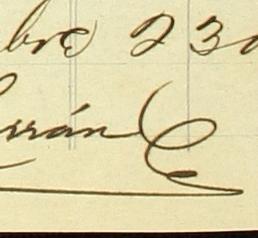 bre 23
rrán